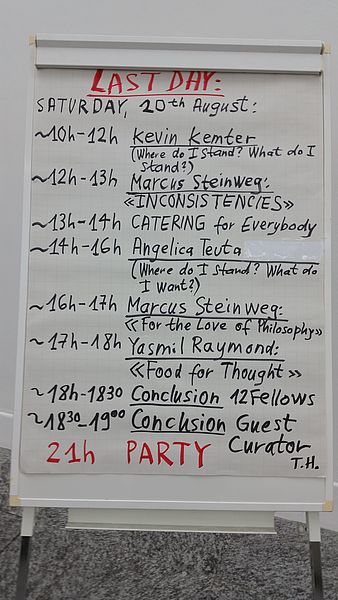 LAST DAY:
SATURDAY, 20th August:
~10h-12h Kevin Kemter
(Where do I stand? What do I
Stand?)
~12h-13h Marcus Steinweg:
«INCONSISTENCIES»
~13h-14h CATERING for Everybody
~14h-16h Angelica Teuta
(Where do I Stand? What do
I Want?)
~16h-17h Marcus Steinweg:
«For the Love of Philosophy»
~17h-18h Yasmil Raymond:
«Food for Thought»
~18h-1830 Conclusion 12Fellows
~1830-1900 Conclusion Guest
Curator
T.H.
21h PARTY